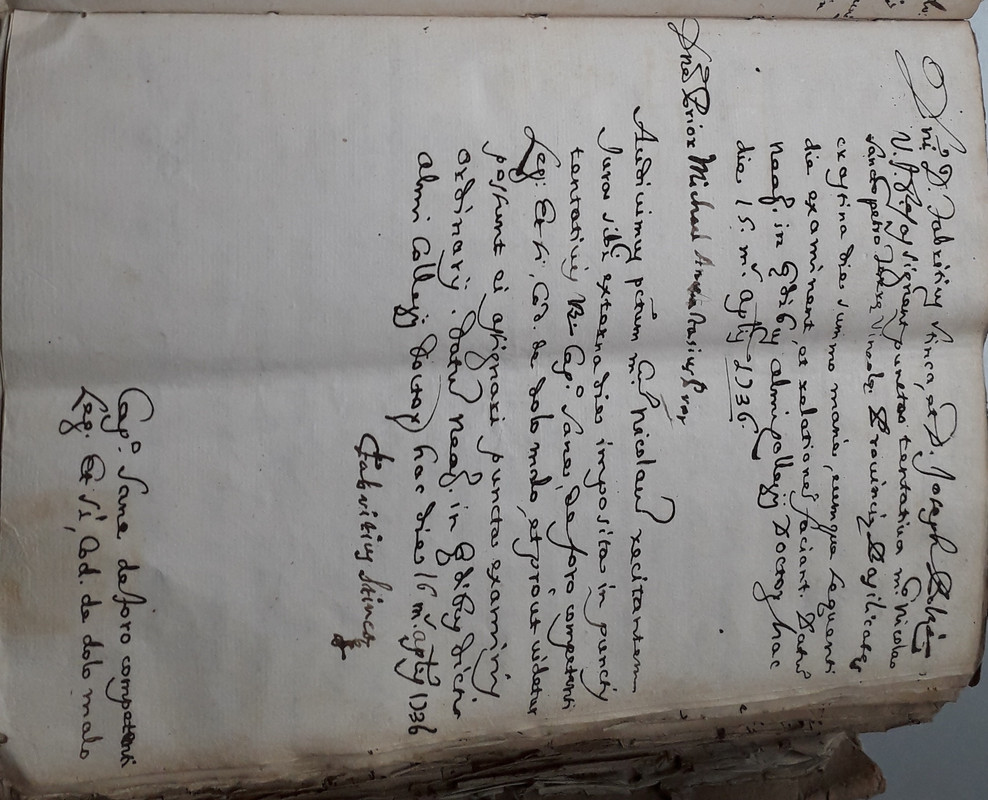 Dñi D. Fabritius Stinca, et D. Joseph
V. I. signent puncta tentativa m.co Nicolao
Sandopetro Terræ Provinciæ Basilicatæ
crastina die summo mane, eumque sequenti
die examinent, et relationes faciant. Datũ
Neap. in ædibus almi Collegij Doctor, hac
die 15. m. aplis 1736.
Dñs Prior Michael Prior
Audivimus m. Nicolaũ recitantem
Jura sibi externa die imposita in punctis
tentativis Vz. Cap.o Sane, de foro competenti
Leg: Et si, Cod. de dolo malo, et prout videtur
possunt ei assignari puncta examinis
ordinarij. Datũ Neap. in ædibus dicti
almi Collegij Doctor, hac die 16 m. aplis 1736
Fabritius Stinca
Cap.o Sane de foro competenti
Leg. Et si, Cod. de dolo malo